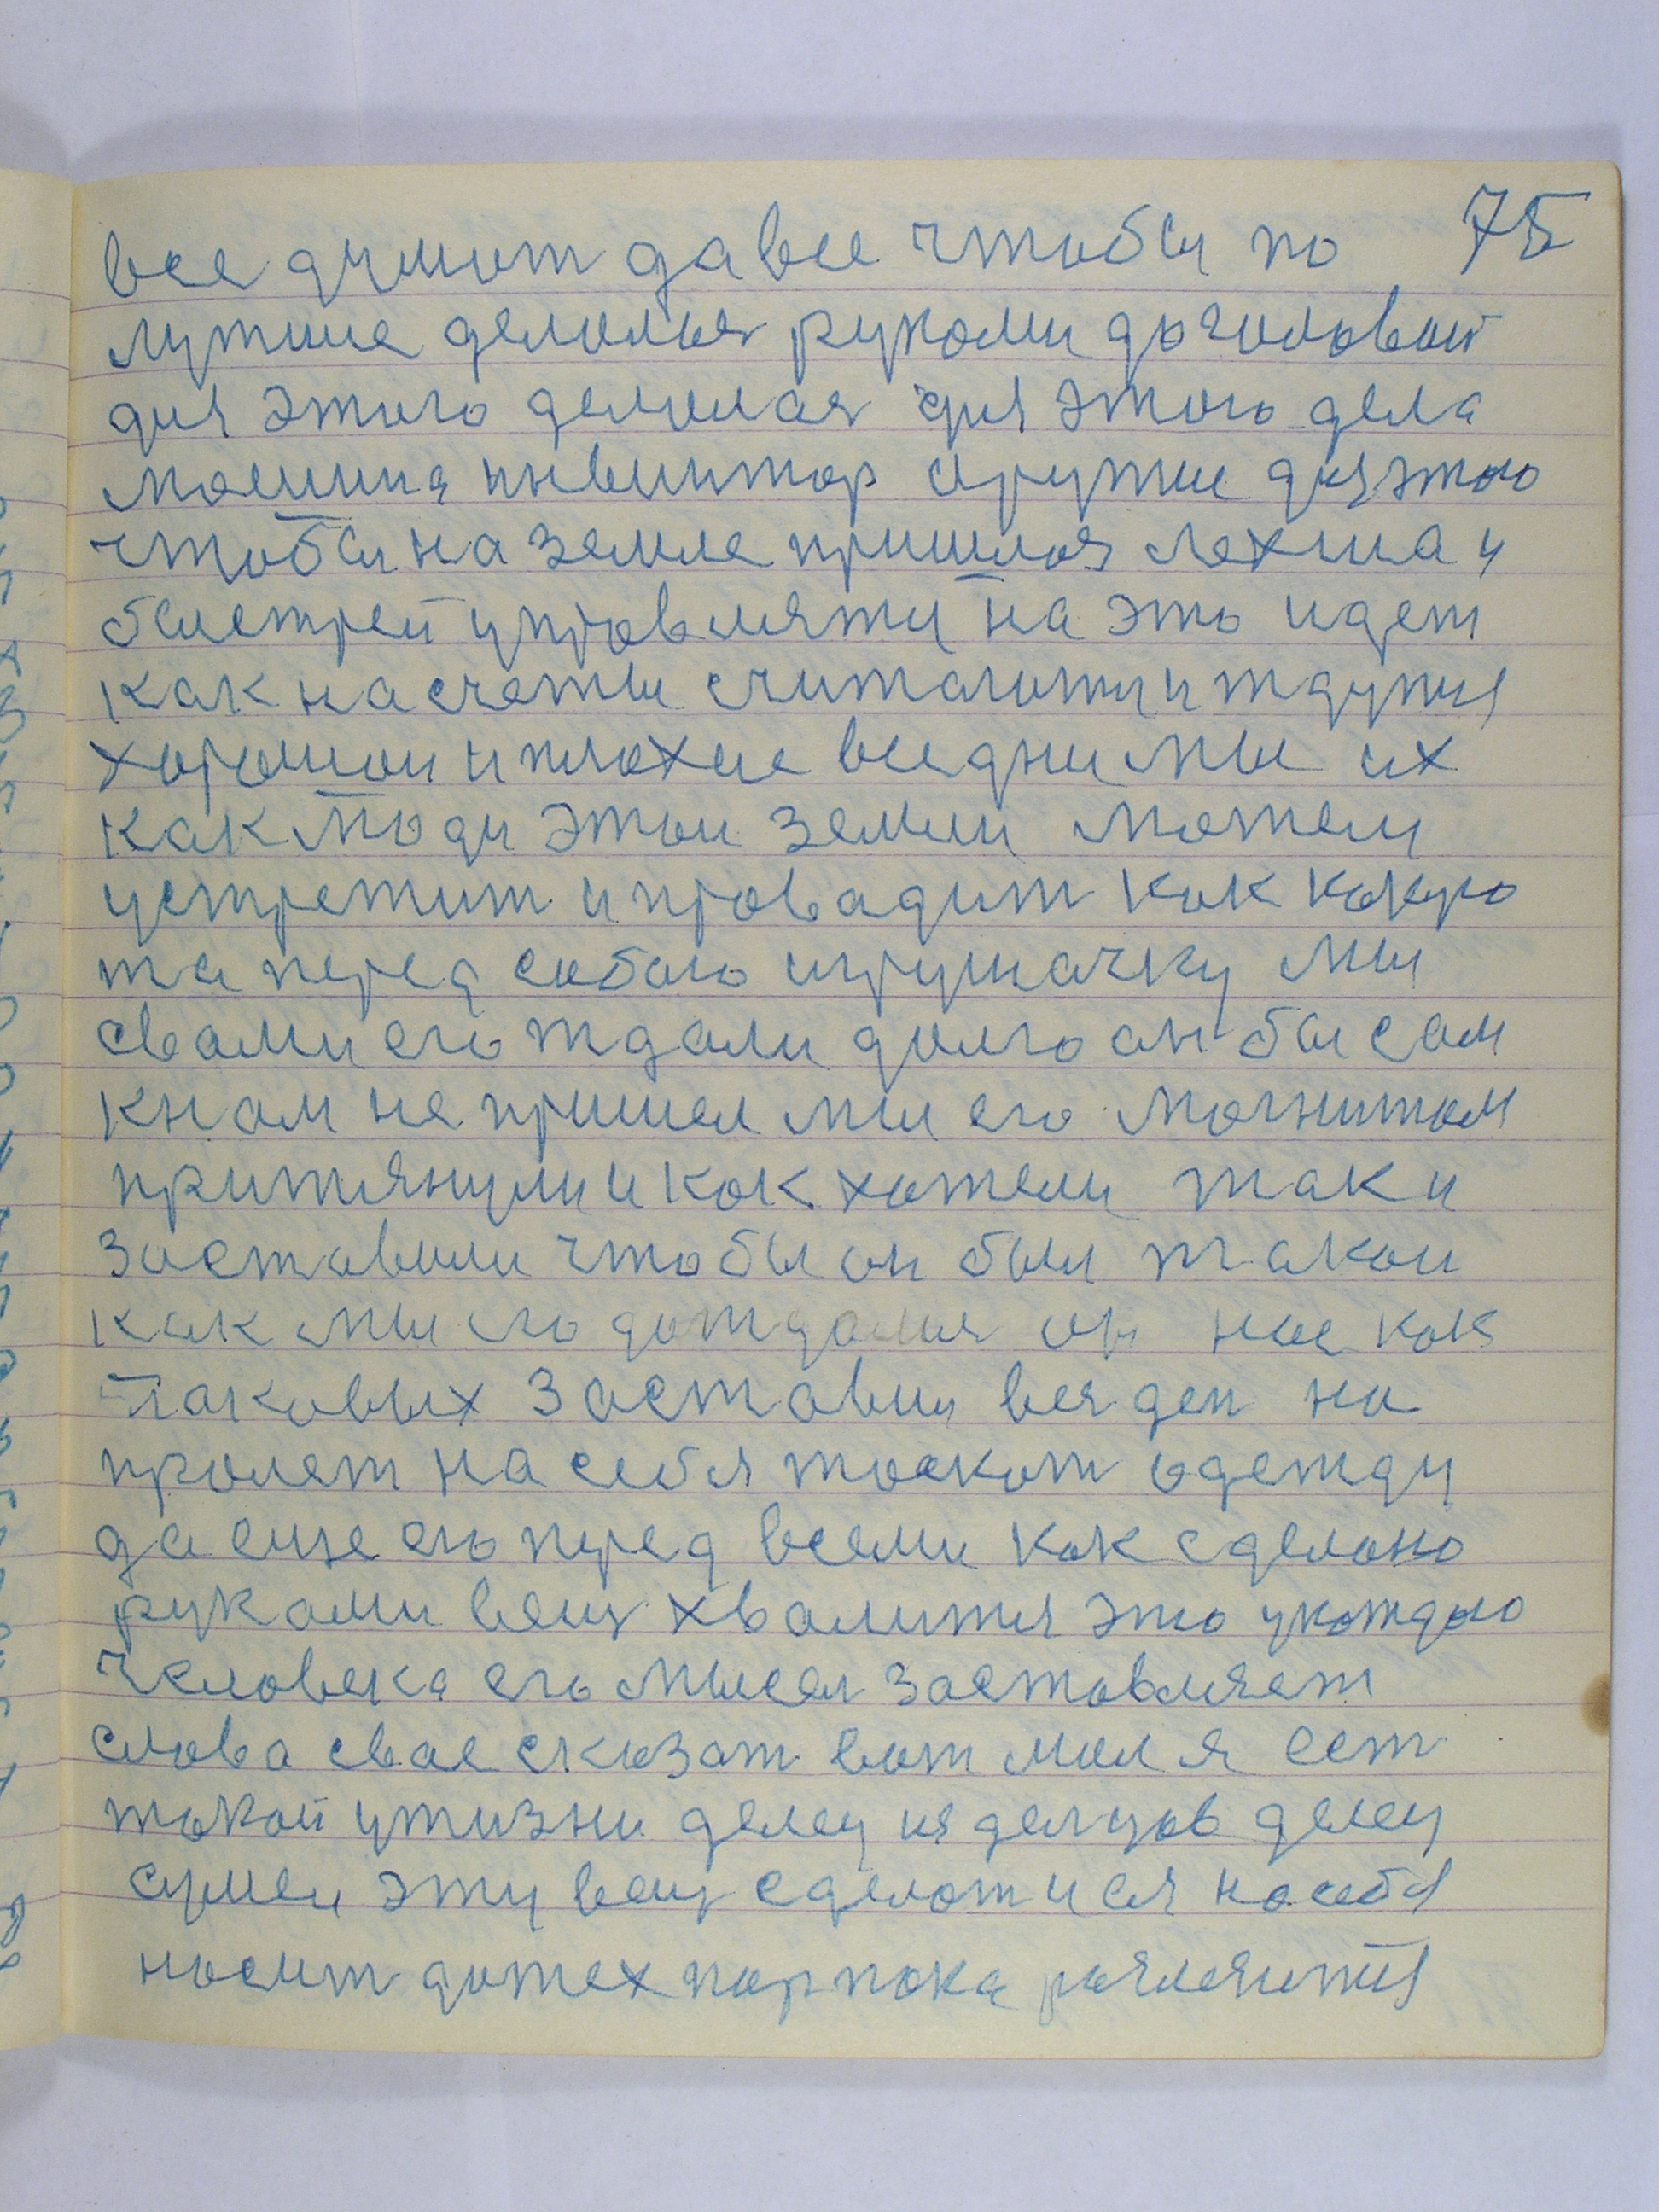 75
все думают да все чтобы по
лутше делалься рукоми да головой
для этого делолася для этого дела
мошина инвинтор иружие для этого
чтобы на земле пришлоя лехша и
быстрей управляти на это идет
как на счеты считалоти и ждутся
хорошои и плохие все дни мы их
как люди этои земли можем
устретит и провадит как какую
та перед собою игрушачку мы
с вами его ждали долго он бы сам
к нам не пришел мы его могнитом
притянули и как хотели так и
заставили чтобы он был такои
как мы его дождолися он нас как
таковых заставил вся ден на
пролет на себя тоскат одежду
да еще его перед всеми как сделоно
рукоми вещ хвалится это укождого
человека его мысел заставляет
слова свае сказат вот мол я ест
такой у жизни делец из делцов делец
сумел эту вещ сделат и ея на себя
носит до тех пор пока